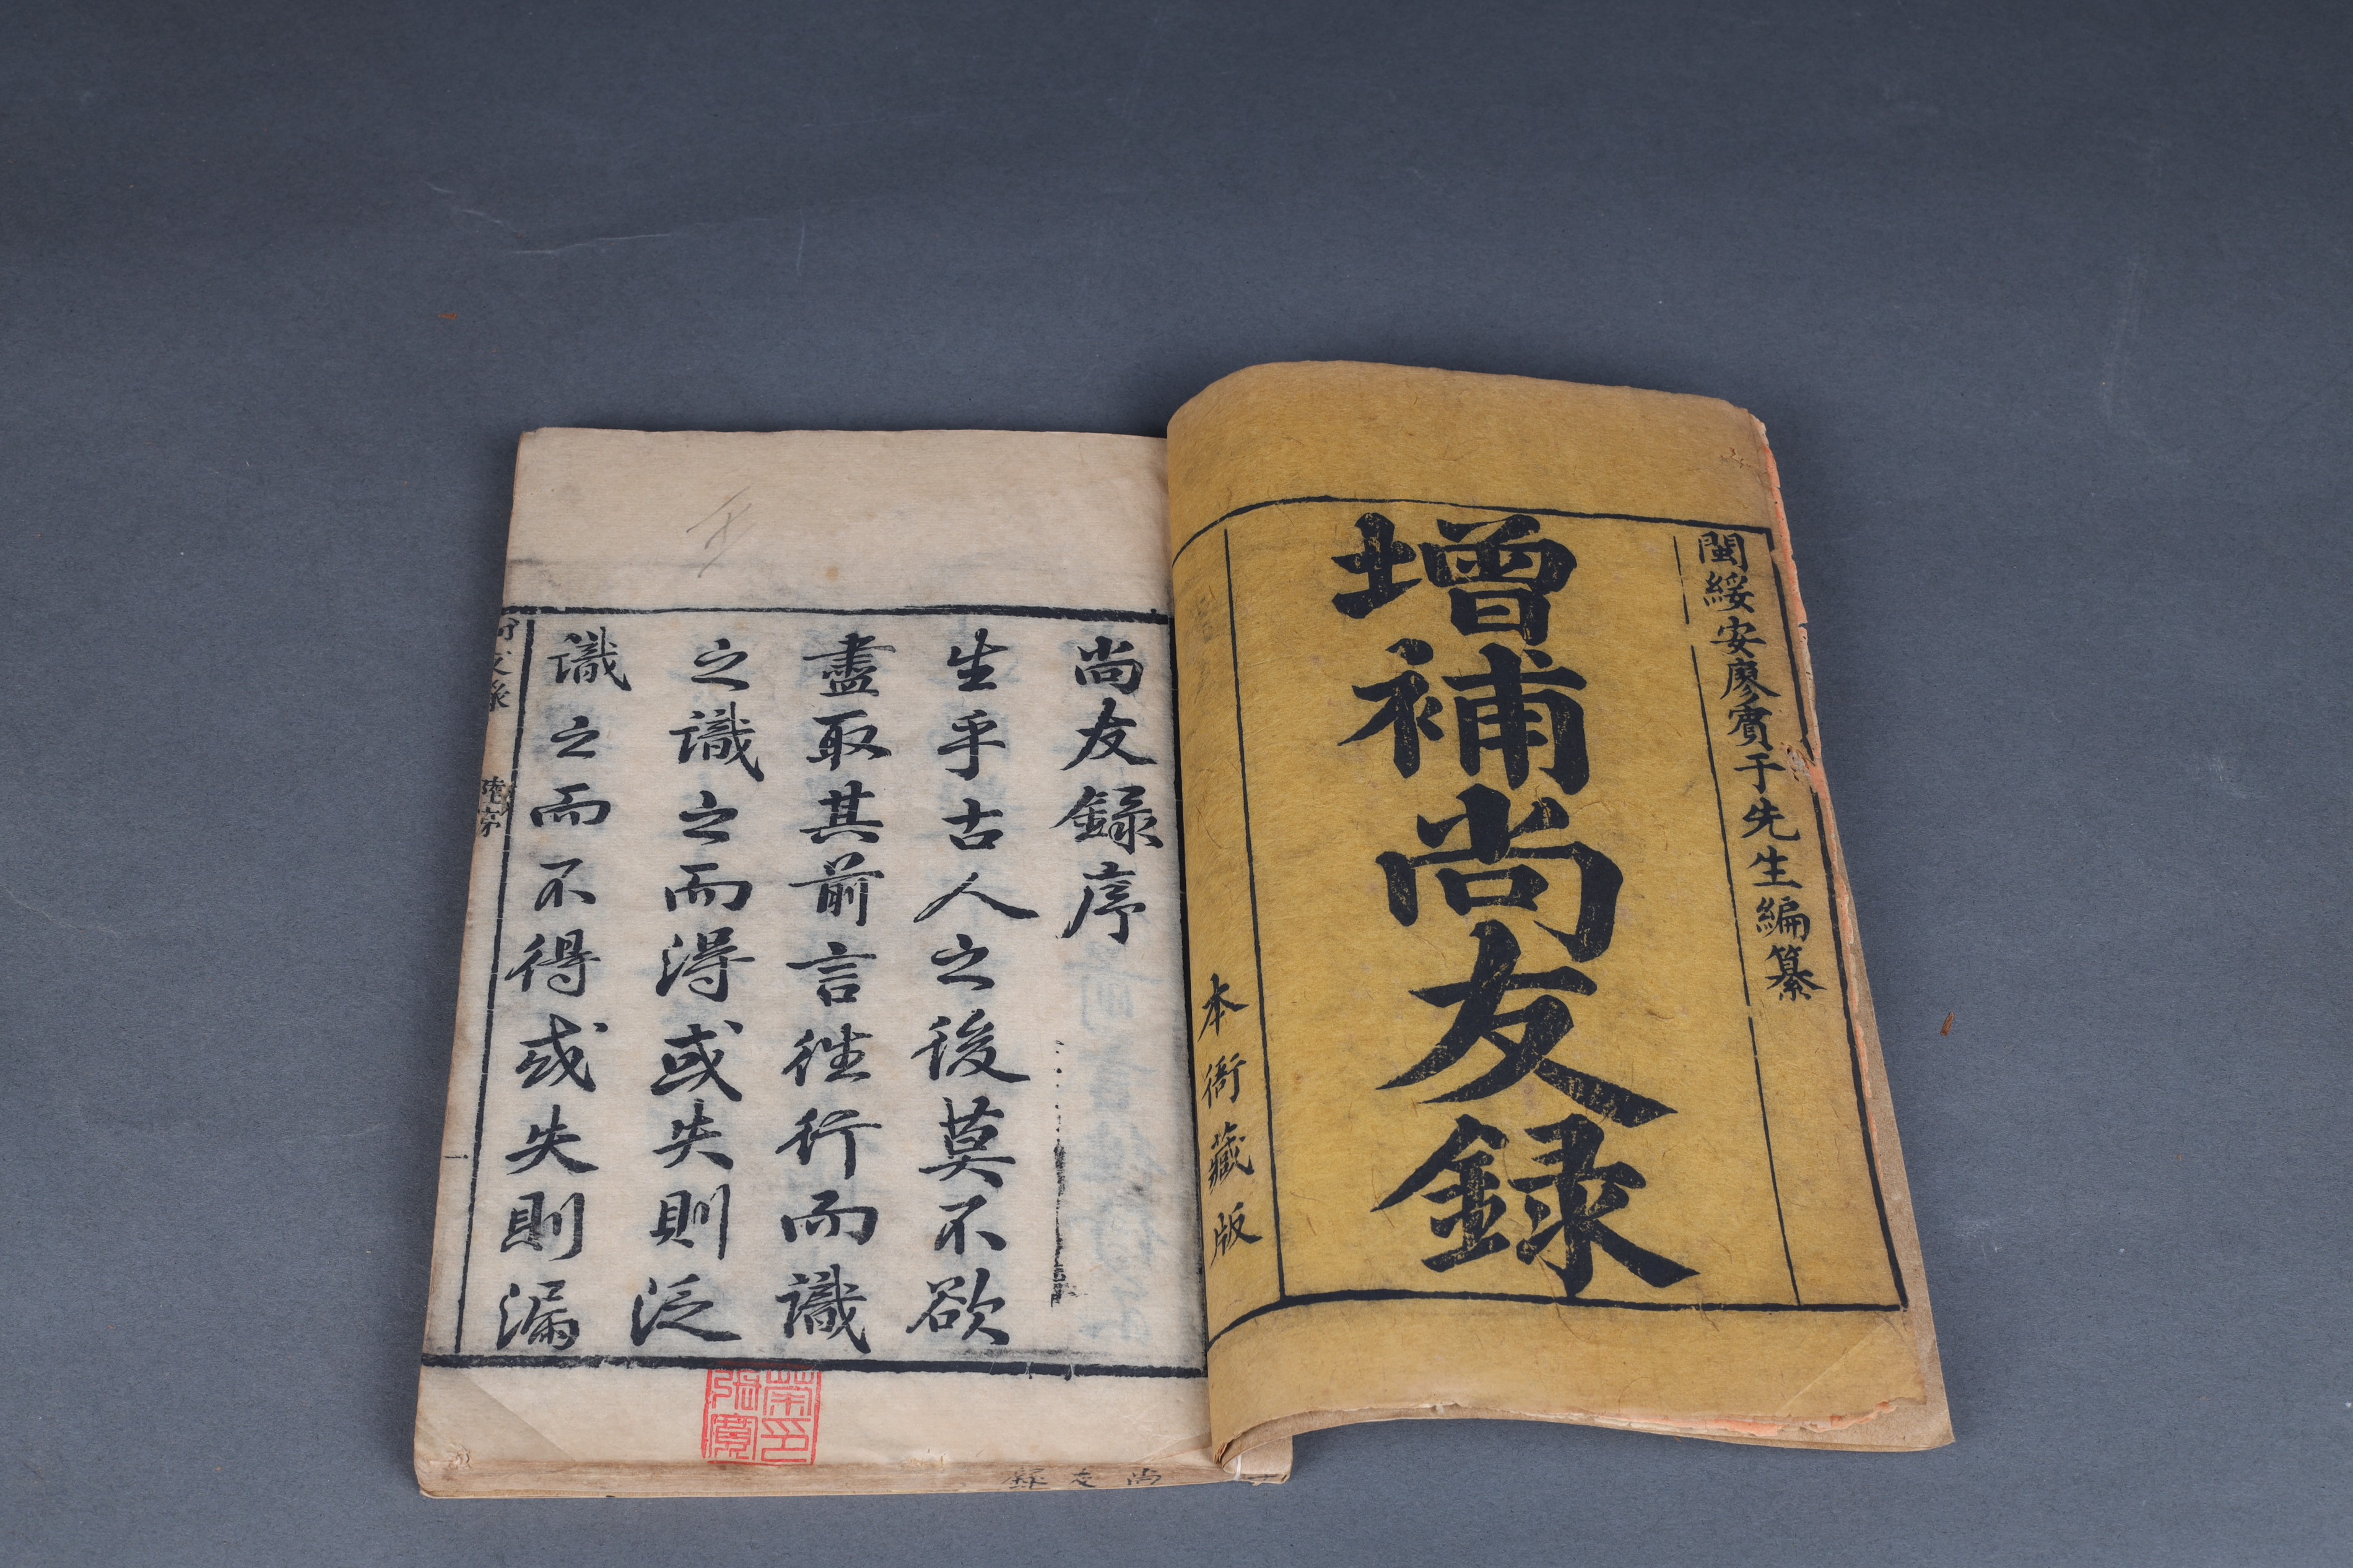 閩綏安廖賓于先生編纂
增補尚友録
本衙藏版
尚友録序
生乎古人之後莫不欲
盡取其前言徃行而識
之識之而得或失則泛
識之而不得或失則漏
一
尚友録